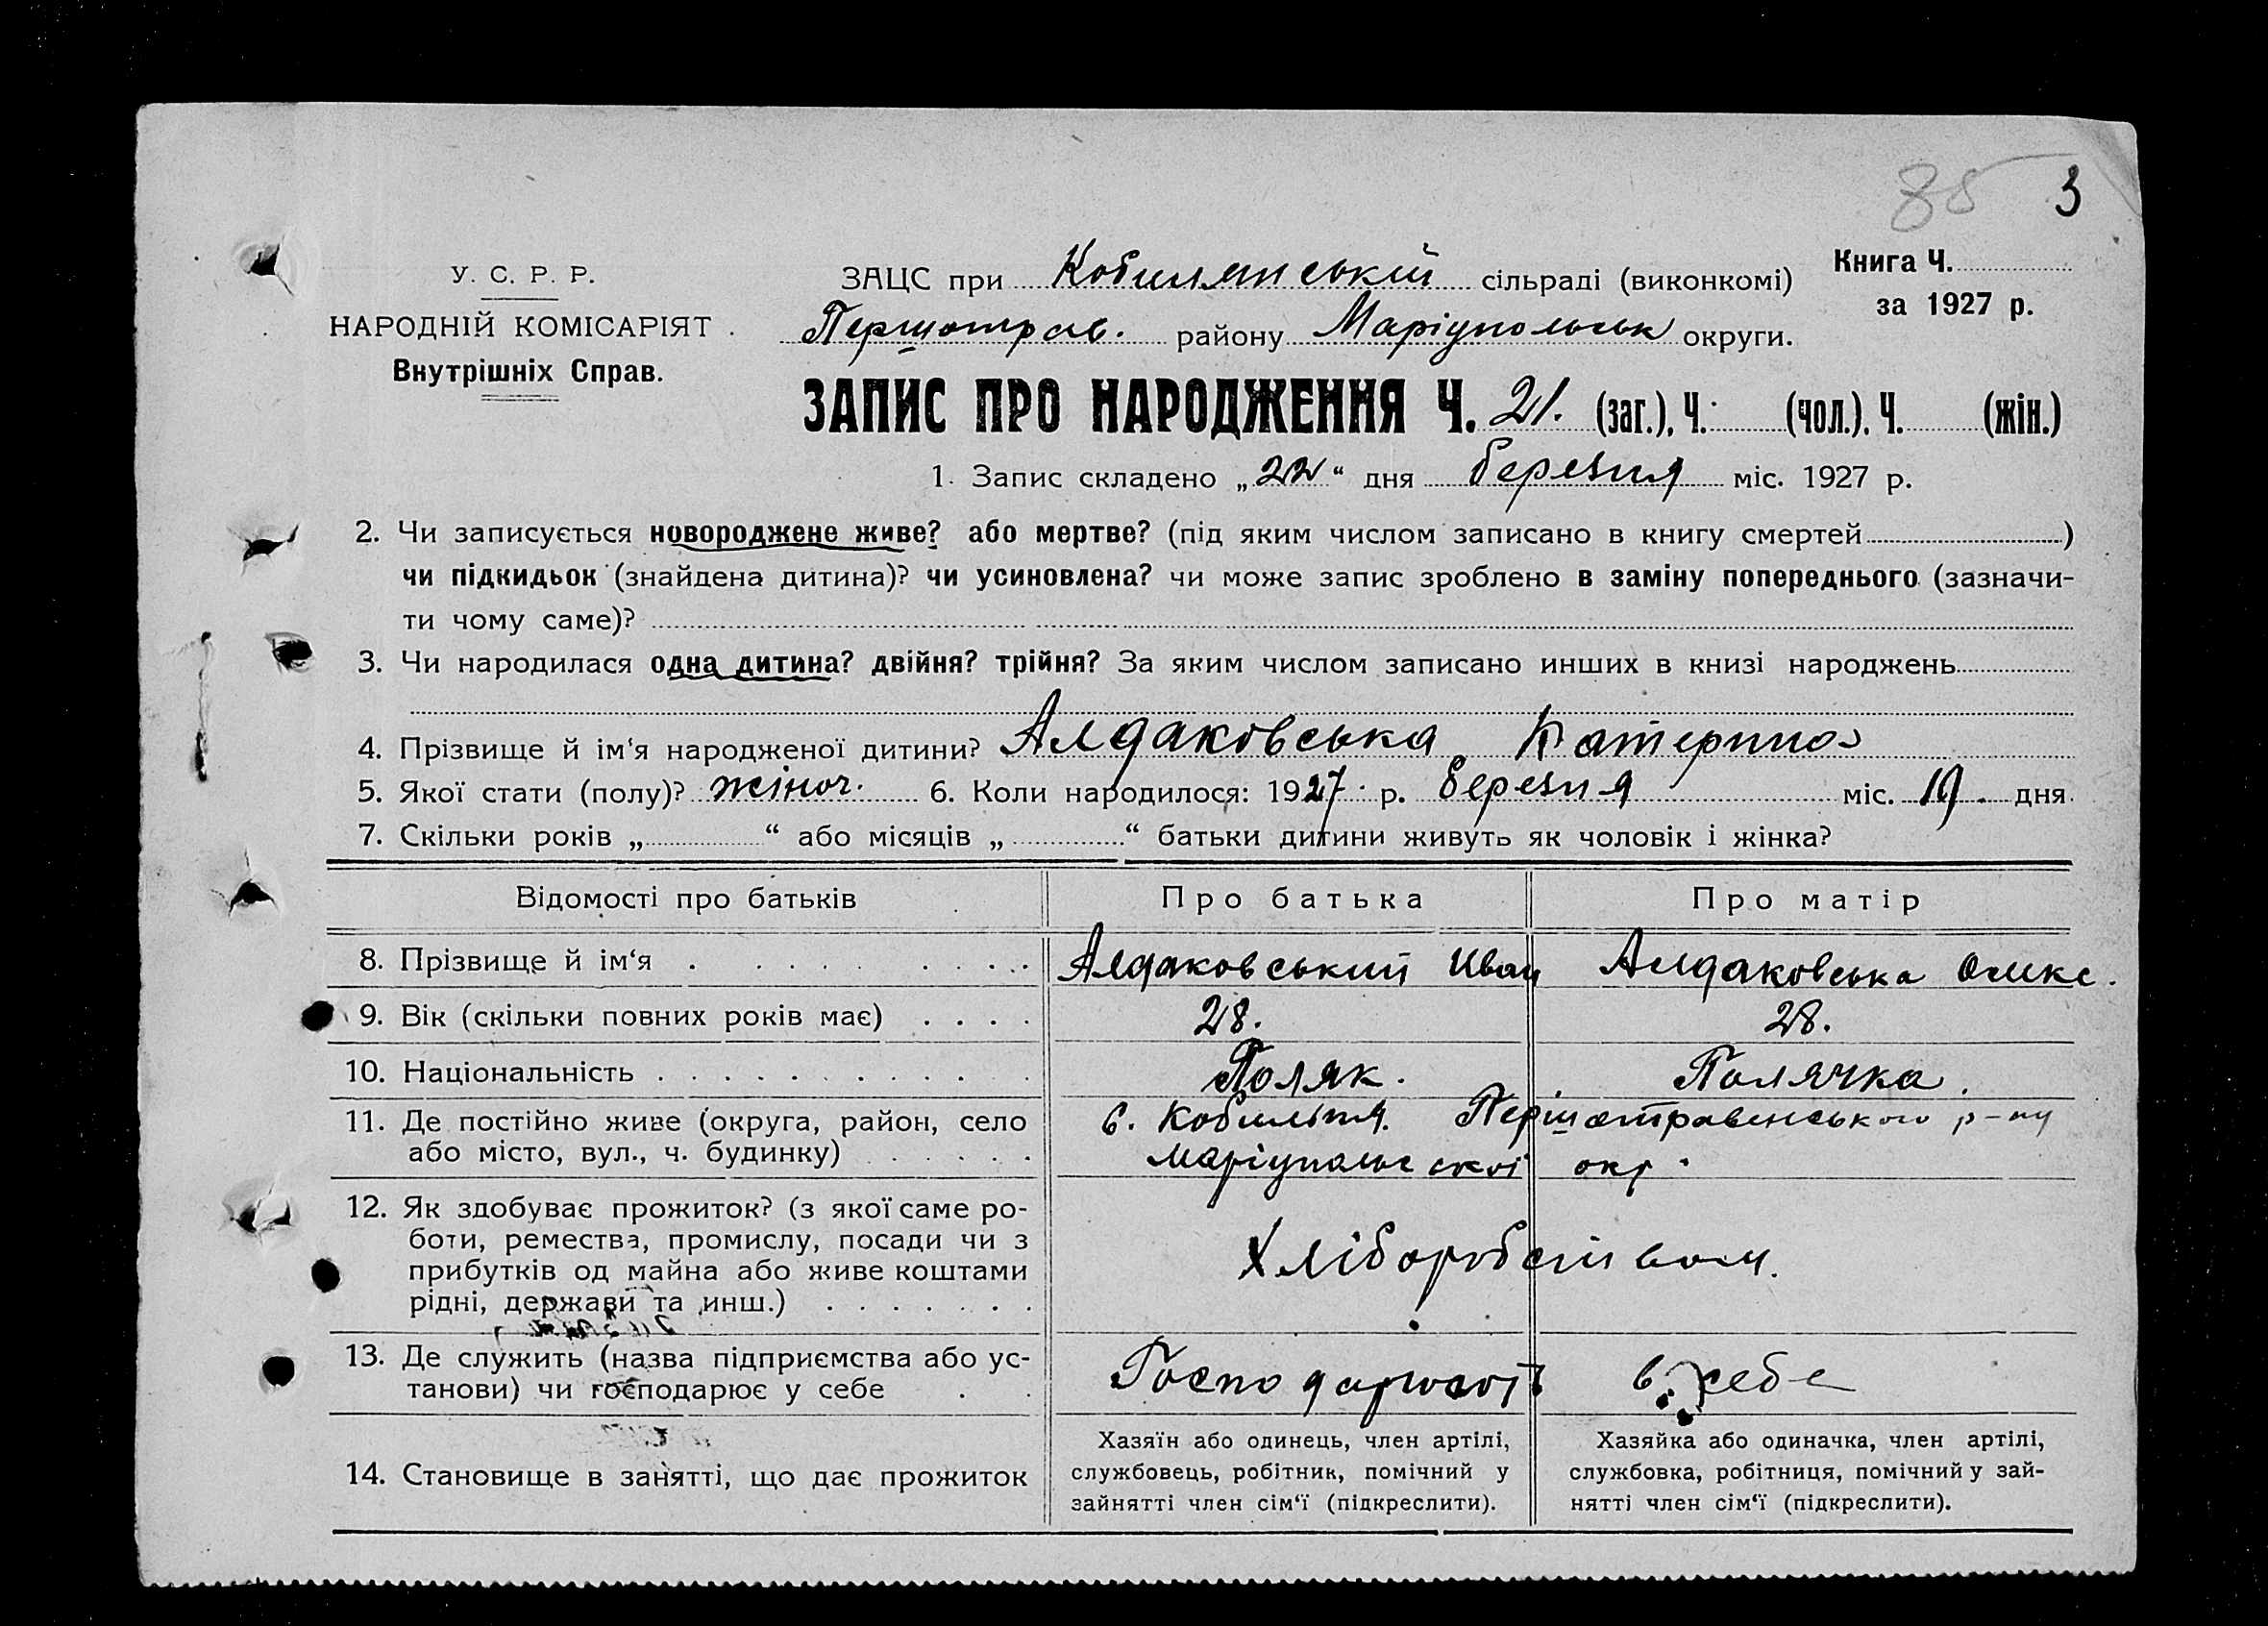 85 3
У. С. Р. Р.
НАРОДНІЙ КОМІСАРІЯТ
Внутрішніх Справ.
ЗАЦС при Кобилянській сільраді (виконкомі)
Першотрав. району Маріупольськ округи.
Книга Ч.
за 1927 р.
ЗАПИС ПРО НАРОДЖЕННЯ Ч. 21. (заг.), Ч. (чол.), Ч. (жін.)
1. Запис складено „22“ дня березня міс. 1927 р.
2. Чи записується новороджене живе? або мертве? (під яким числом записано в книгу смертей)
чи підкидьок (знайдена дитина)? чи усиновлена? чи може запис зроблено в заміну попереднього (зазначи-
ти чому саме)?
3. Чи народилася одна дитина? двійня? трійня? За яким числом записано инших в книзі народжень
4. Прізвище й ім‘я народженої дитини? Алдаковська Катерина
5. Якої стати (полу)? жіноч. 6. Коли народилося: 1927 р. березня міс. 19. дня
7. Скільки років „ “ або місяців „ “ батьки дитини живуть як чоловік і жінка?
Відомості про батьків Про батька Про матір
8. Прізвище й ім‘я Алдаковський Иван Алдаковська Олекс.
9. Вік (скільки повних років має) 28. 28.
10. Національність Поляк. Полячка.
11. Де постійно живе (округа, район, село
або місто, вул., ч. будинку)
с. Кобильня. Першотравенського р-ну
Маріупольської окр.
12. Як здобуває прожиток? (з якої саме ро-
боти, ремества, промислу, посади чи з
прибутків од майна або живе коштами
рідні, держави та инш.)
Хліборобством.
13. Де служить (назва підприємства або ус-
танови) чи господарює у себе
Господарюють в себе
14. Становище в занятті, що дає прожиток
Хазяїн або одинець, член артілі,
службовець, робітник, помічний у
зайнятті член сім‘ї (підкреслити).
Хазяйка або одиначка, член артілі,
службовка, робітниця, помічний у зай-
нятті член сім‘ї (підкреслити).